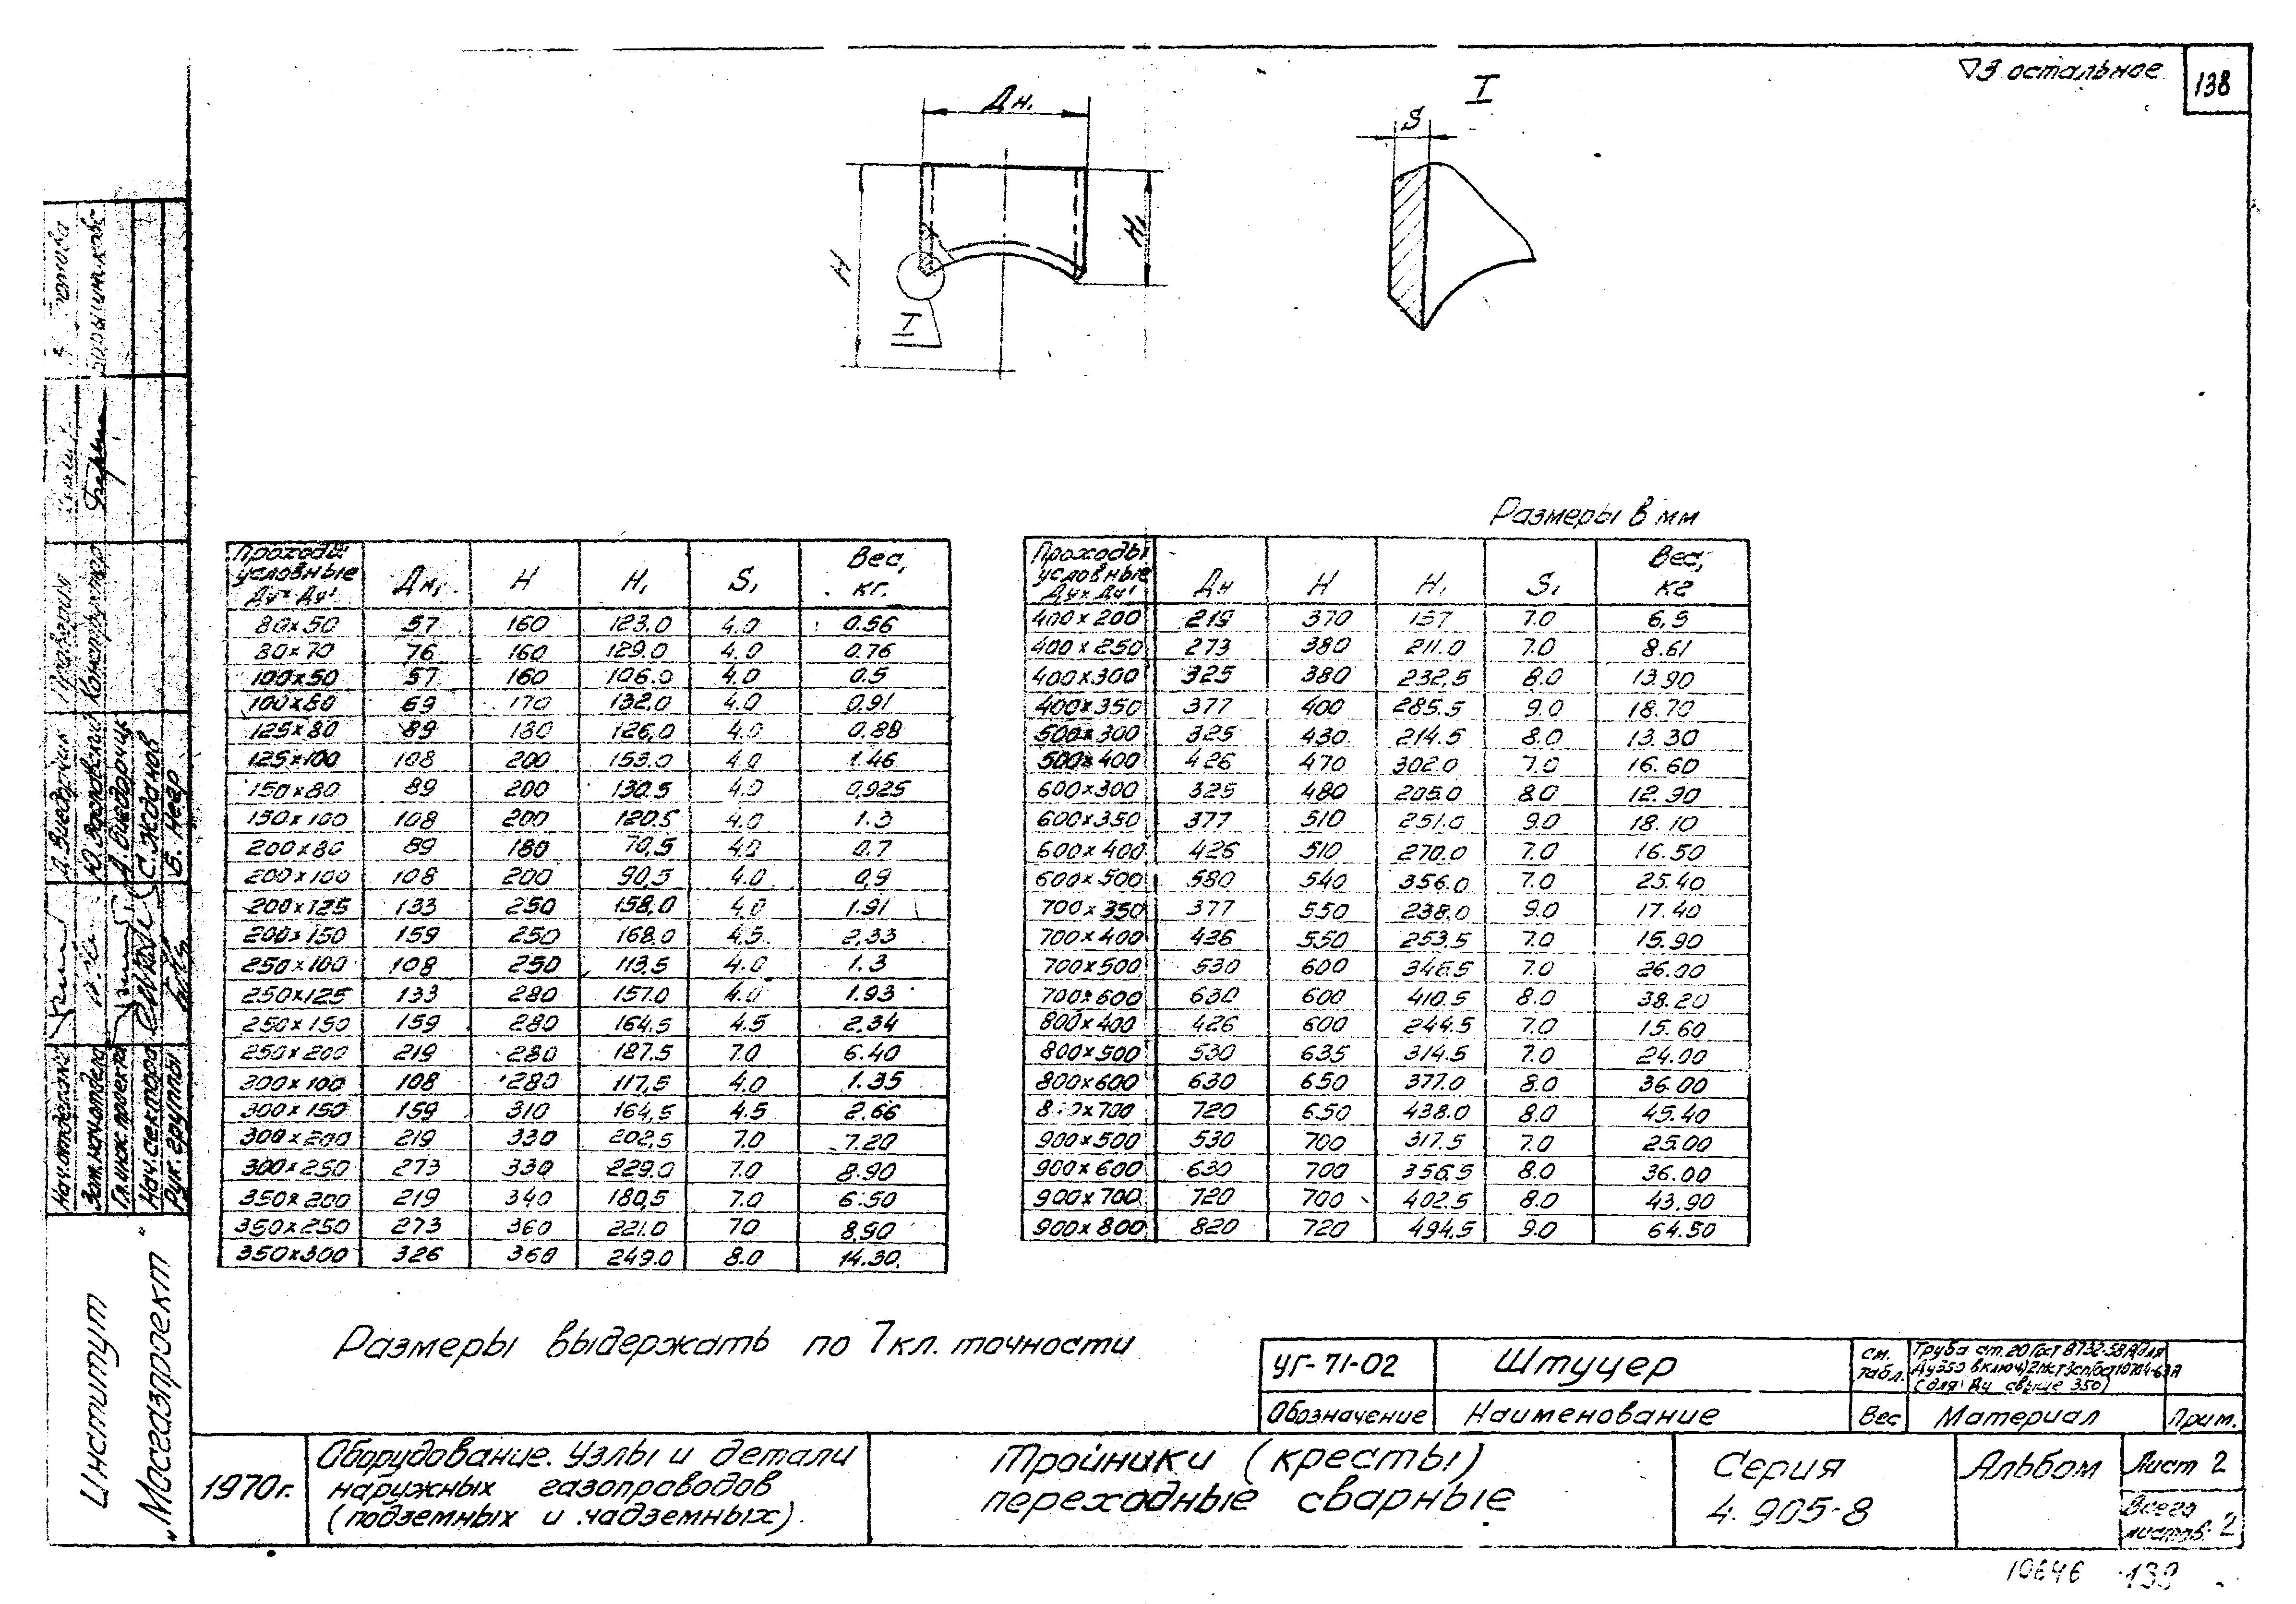 ▽3 остальное
138
Дн.
H
H₁
I
I
S
Размеры в мм
Проходы условные Ду×Ду' Дн, H H₁ S₁ Вес, кг.
80×50 57 160 123.0 4.0 0.56
80×70 76 160 129.0 4.0 0.76
100×50 57 160 106.0 4.0 0.5
100×80 69 170 132.0 4.0 0.91
125×80 89 180 126,0 4.0 0.88
125×100 108 200 153.0 4.0 1.46
150×80 89 200 130.5 4.0 0,925
150×100 108 200 120.5 4.0 1.3
200×80 89 180 70,5 4.0 0.7
200×100 108 200 90,5 4.0 0,9
200×125 133 250 158,0 4.0 1.91
200×150 159 250 168.0 4.5 2,33
250×100 108 250 113,5 4.0 1.3
250×125 133 280 157.0 4.0 1.93
250×150 159 280 164,5 4.5 2,34
250×200 219 280 187.5 7.0 6.40
300×100 108 280 117,5 4.0 1.35
300×150 159 310 164,5 4.5 2.66
300×200 219 330 202,5 7.0 7.20
300×250 273 330 229.0 7.0 8.90
350×200 219 340 180,5 7.0 6.50
350×250 273 360 221.0 70 8,90
350×300 326 360 249.0 8.0 14.30
Проходы условные Ду×Ду' Дн H H₁ S₁ Вес, кг
400×200 219 370 157 7.0 6,5
400×250 273 380 211.0 7.0 8.61
400×300 325 380 232,5 8.0 13.90
400×350 377 400 285.5 9.0 18.70
500×300 325 430 214.5 8.0 13.30
500×400 426 470 302.0 7.0 16.60
600×300 325 480 205.0 8.0 12.90
600×350 377 510 251.0 9.0 18.10
600×400 426 510 270.0 7.0 16.50
600×500 580 540 356.0 7.0 25.40
700×350 377 550 238.0 9.0 17.40
700×400 426 550 253.5 7.0 15.90
700×500 530 600 346.5 7.0 26.00
700×600 630 600 410.5 8.0 38.20
800×400 426 600 244.5 7.0 15.60
800×500 530 635 314.5 7.0 24.00
800×600 630 650 377.0 8.0 36.00
8 0×700 720 650 438.0 8.0 45.40
900×500 530 700 317.5 7.0 25.00
900×600 630 700 356,5 8.0 36.00
900×700 720 700 402.5 8.0 43.90
900×800 820 720 494,5 9.0 64.50
Размеры выдержать по 7кл. точности
УГ-71-02 Штуцер см. табл.
Труба ст.20 Гост 8732-58 А(для
Ду350 включ)
(для Ду свыше 350)
Обозначение Наименование Вес Материал Прим.
1970г.
Оборудование. Узлы и детали
наружных газопроводов
(подземных и надземных).
Тройники (кресты)
переходные сварные
Серия
4.905-8
Альбом
Лист 2
Всего
листов 2
10646 139
Институт
„Мосгазпроект"
Нач.отдела
Зам.нач.отдела Конструктор
Гл.инж.проекта
Нач.сектора С.Жданов
Рук.группы Б. Неер